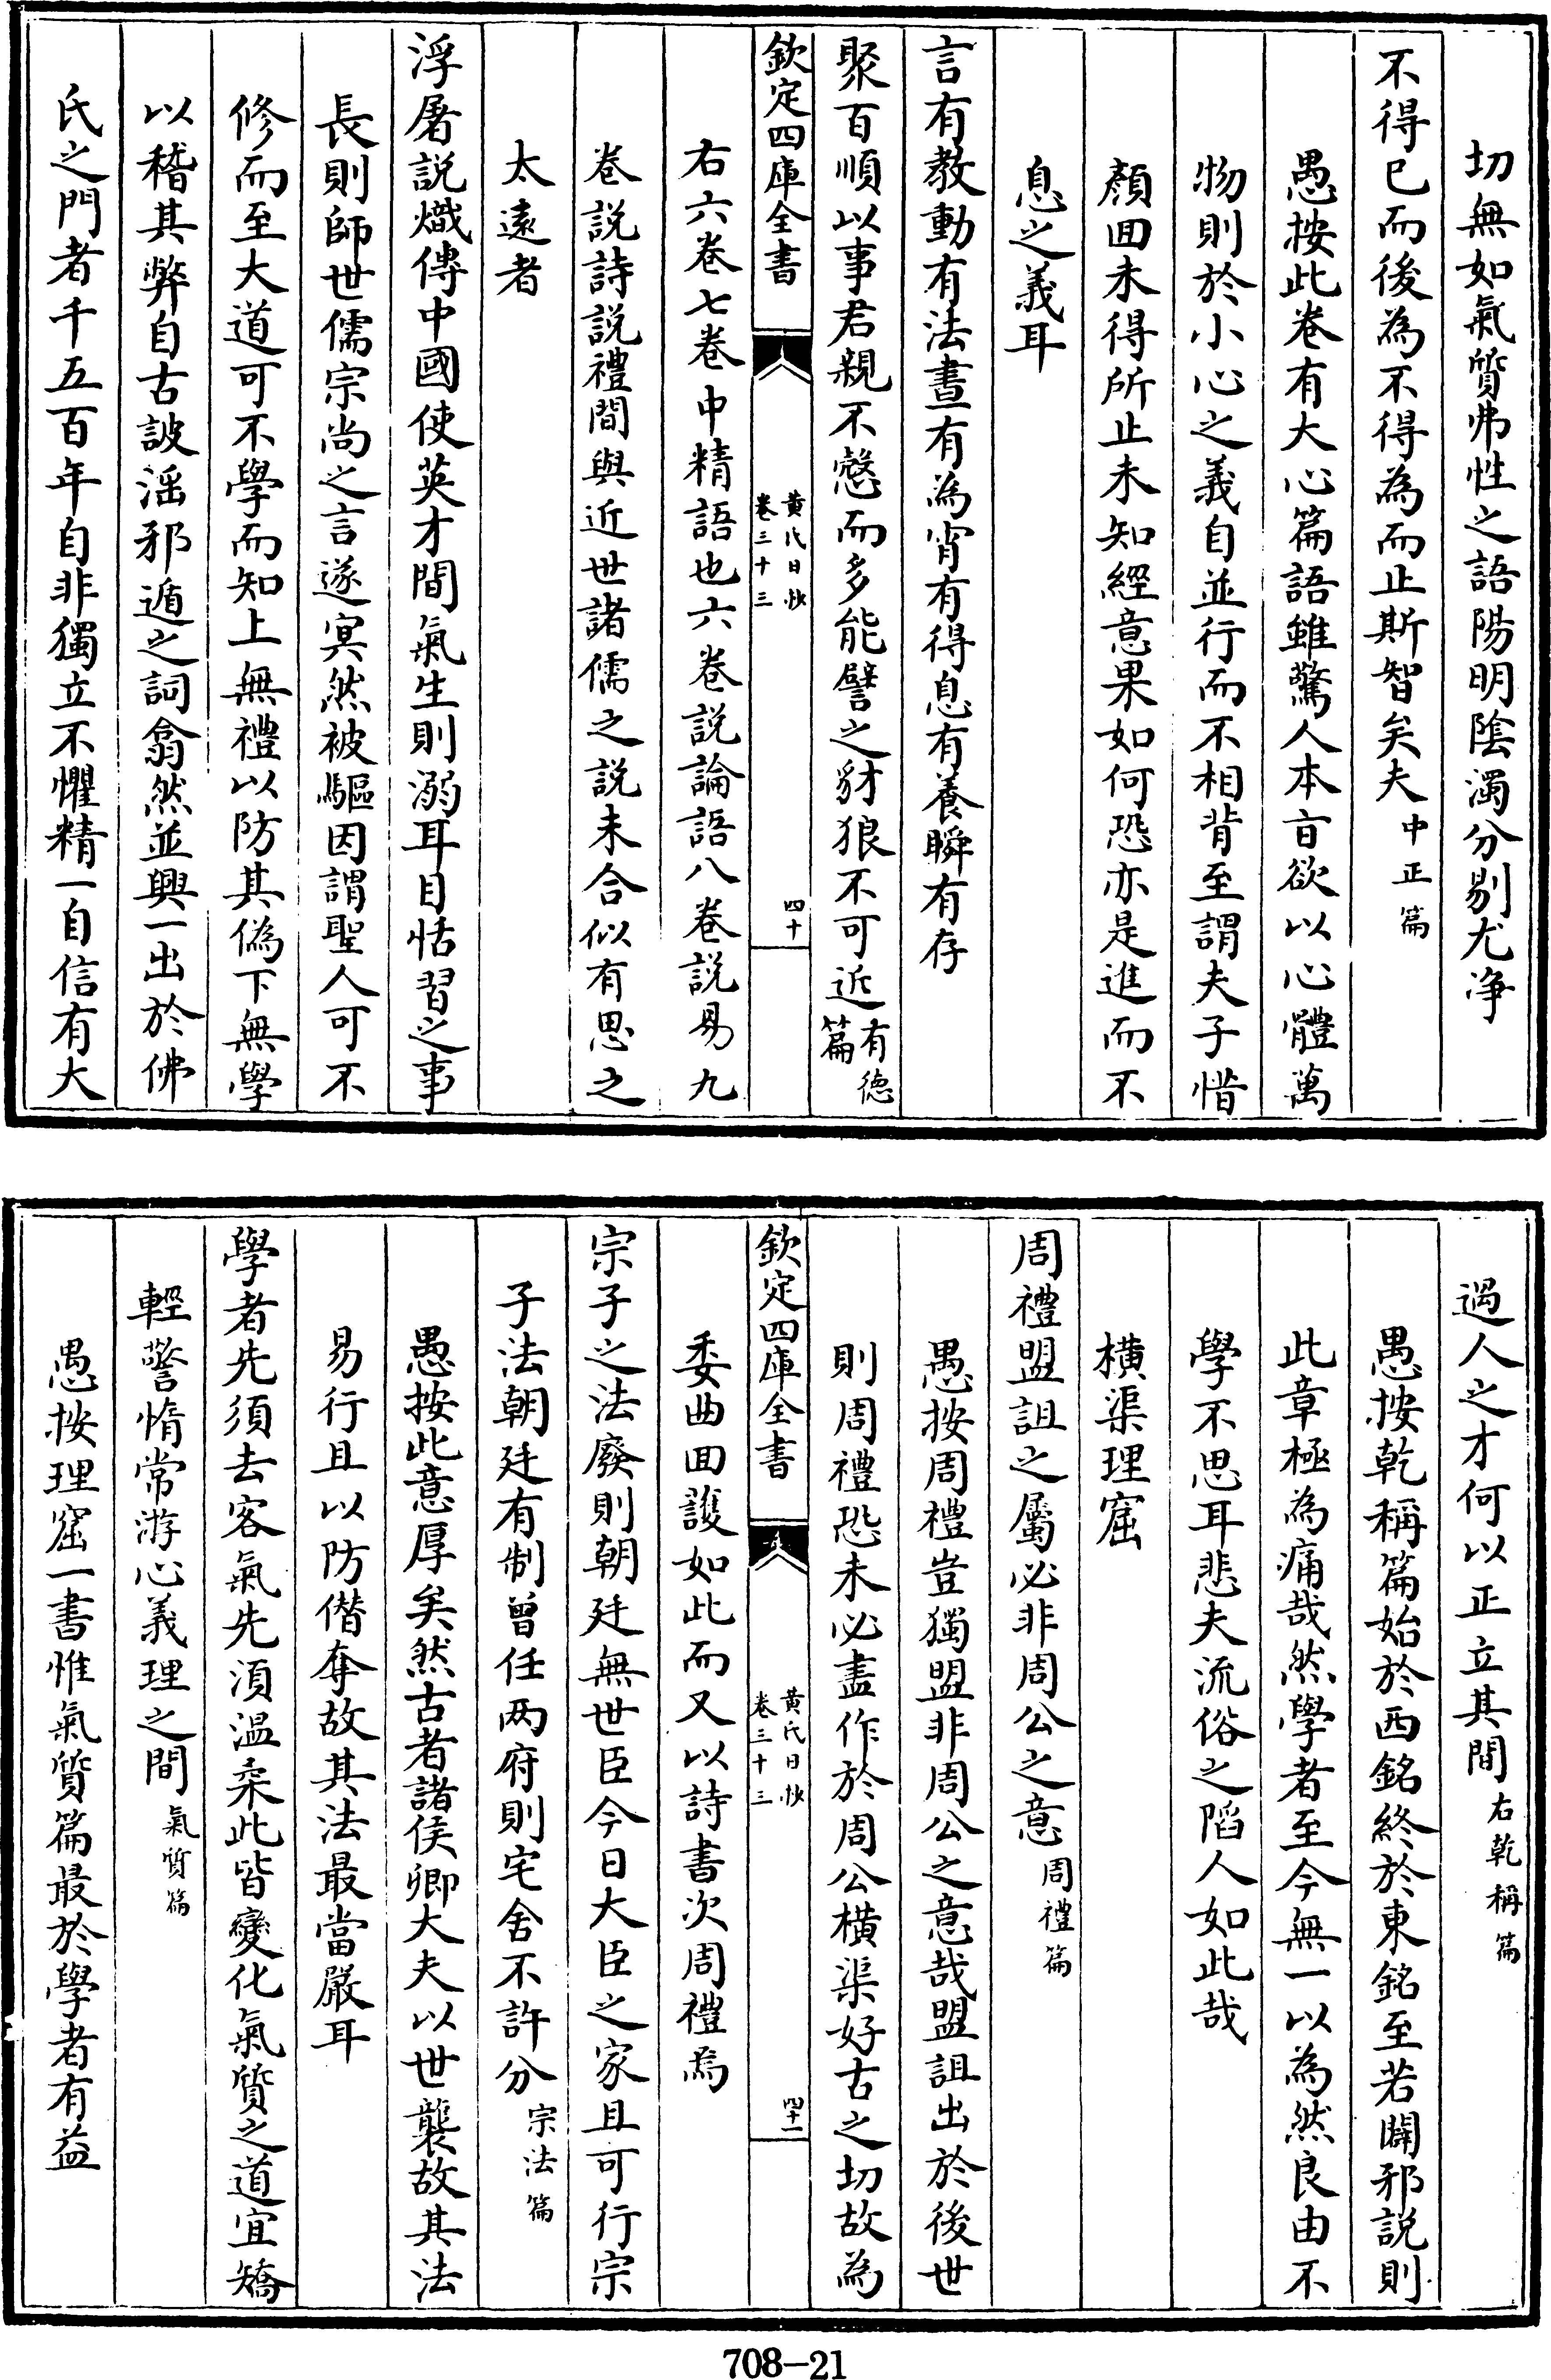 切無如氣質弗性之語陽明陰濁分别尤净
不得已而後為不得為而止斯智矣夫中正篇
愚按此卷有大心篇語雖驚人本㫖欲以心體萬
物則於小心之義自並行而不相背至謂夫子惜
顔囬未得所止未知經意果如何恐亦是進而不
息之義耳
言有教動有法晝有為宵有得息有養瞬有存
聚百順以事君親不慤而多能譬之豺狼不可近有德篇
欽定四庫全書
黄氏日抄
卷三十三
四十
右六卷七卷中精語也六卷説論語八卷説易九
卷説詩説禮間與近世諸儒之説未合似有思之
太逺者
浮屠説熾傳中國使英才間氣生則溺耳目恬習之事
長則師世儒宗尚之言遂㝠然被驅因謂聖人可不
修而至大道可不學而知上無禮以防其偽下無學
以稽其弊自古詖滛邪遁之詞翕然並興一出於佛
氏之門者千五百年自非獨立不懼精一自信有大
過人之才何以正立其間右乾稱篇
愚按乾稱篇始於西銘終於東銘至若闢邪説則
此章極為痛哉然學者至今無一以為然良由不
學不思耳悲夫流俗之䧟人如此哉
横渠理窟
周禮盟詛之屬必非周公之意周禮篇
愚按周禮豈獨盟非周公之意哉盟詛出於後世
則周禮恐未必盡作於周公横渠好古之切故為
欽定四庫全書
黄氏日抄
卷三十三
四十一
委曲囬護如此而又以詩書次周禮焉
宗子之法廢則朝廷無世臣今日大臣之家且可行宗
子法朝廷有制曾任两府則宅舍不許分宗法篇
愚按此意厚矣然古者諸侯卿大夫以世襲故其法
易行且以防僭奪故其法最當嚴耳
學者先須去客氣先湏温柔此皆變化氣質之道宜矯
輕警惰常游心義理之間氣質篇
愚按理窟一書惟氣質篇最於學者有益
708-21